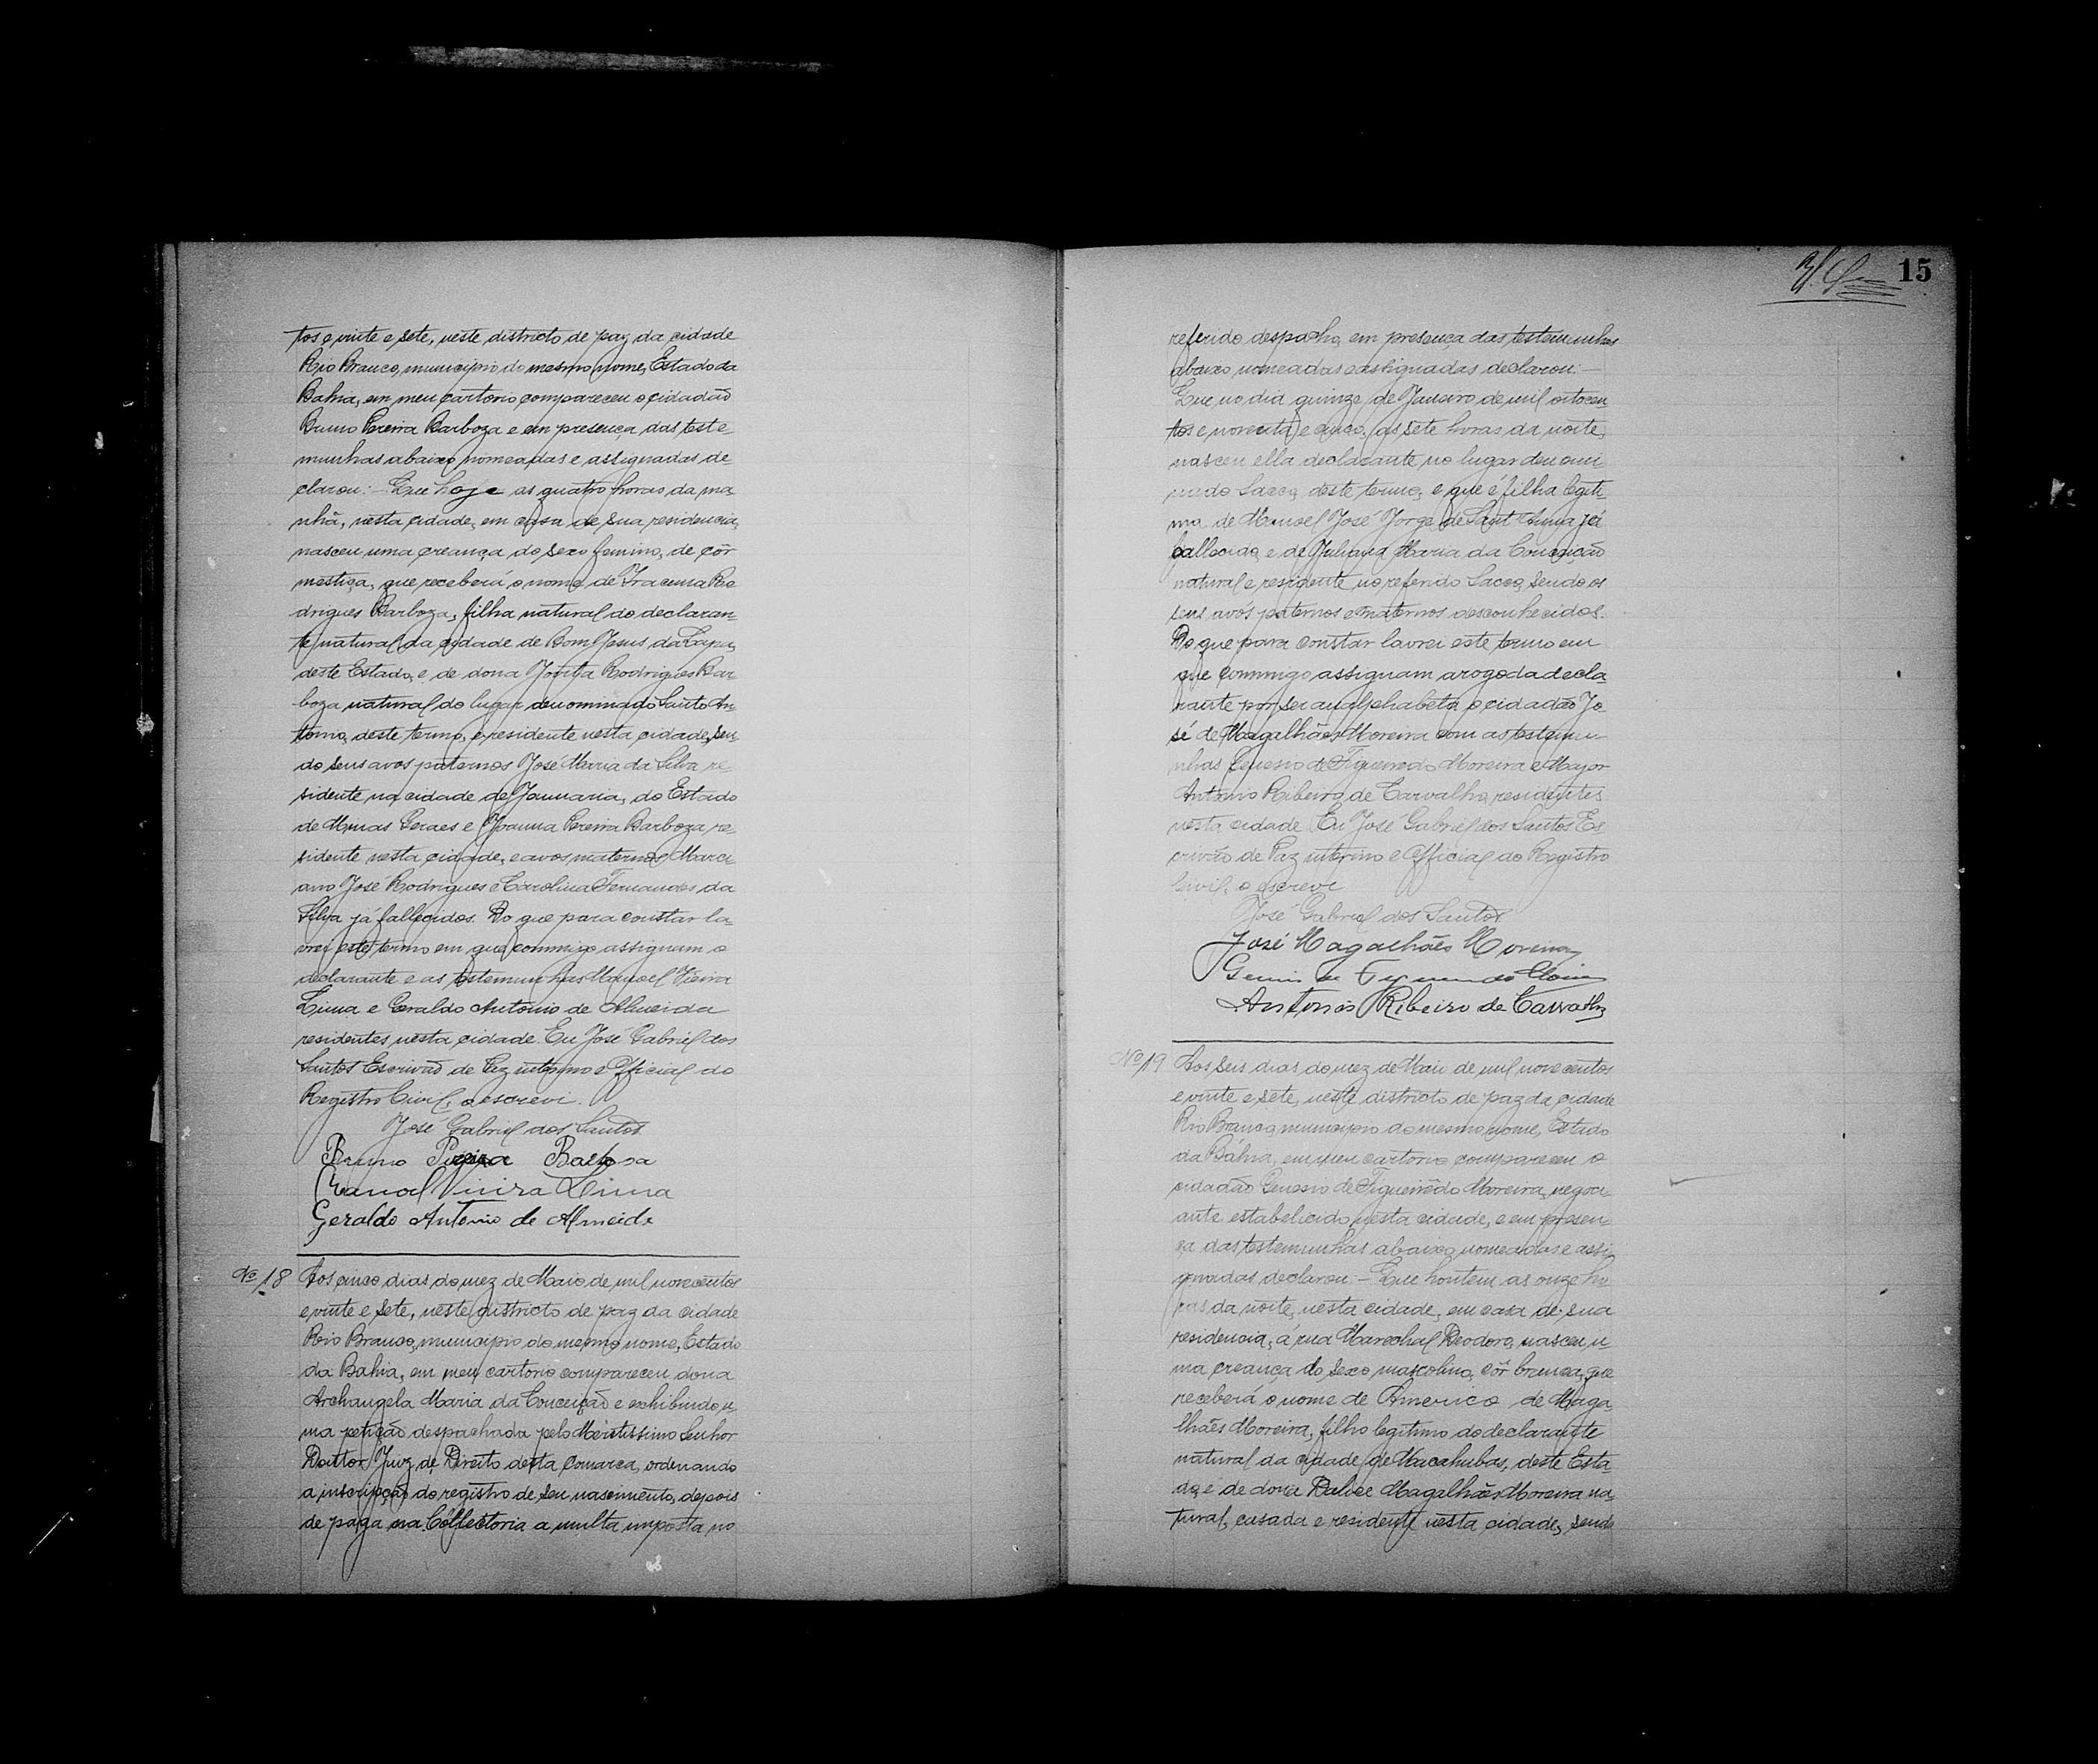 tos e vinte e sete, neste districto de paz da cidade
Rio Branco, municipio do mesmo nome, Estado da
Bahia, em meu cartorio compareceu o cidadão
Bruno Pereira Barboza e em presença das teste
munhas abaixo nomeadas e assignadas de-
clarou: – Que hoje as quatro horas da ma-
nhã, nesta cidade, em casa de sua residencia,
nasceu uma creança do sexo femino, de côr
mestiça, que receberá o nome de Iracema Ro
drigues Barboza, filha natural do declaran-
te natural da cidade de Bom Jesus da Lapa,
deste Estado, e de dona Rodrigues Bar-
boza natural do lugar denominado Santo An-
tonio, deste termo, e residente nesta cidade, sen-
do seus avos paternos José Maria da Silva re-
sidente na cidade de Januaria, do Estado
de Minas Geraes e Joanna Pereira Barboza re-
sidente nesta cidade, e avos maternos Marci
ano José Rodrigues e Carolina Fernandes da
Silva já fallecidos. Do que para constar la-
vrei este termo em que commigo assignam o
declarante e as testemunhas Manoel Vieira
Lima e Geraldo Antonio de Almeida
residentes nesta cidade. Eu José Gabriel dos
Santos Escrivão de Paz interino e Official do
Registro Civil, o escrevi.
José Gabriel dos Santos
Bruno Pereira Barbosa
Manoel Vieira Lima
Geraldo Antonio de Almeida
Nº 18 Aos cinco dias do mez de Maio de mil novecentos
e vinte e sete, neste districto de paz da cidade
Rio Branco, municipio do mesmo nome, Estado
da Bahia, em meu cartorio compareceu dona
Archangela Maria da Conceição e exhibindo u-
ma petição despachada pelo Meritissimo Senhor
Doutor Juiz de Direito desta Comarca, ordenando
a inscripção do registro de seu nascimento, depois
de paga na Collectoria a multa imposta no
15
referido despacho, em presença das testemunhas
abaixo nomeadas e assignadas declarou: –
Que no dia quinze de Janeiro de mil oitocen-
tos e noventa e cinco, as sete horas da noite,
nasceu ella declarante no lugar denomi-
nado Sacco, deste termo, e que é filha legiti-
ma de Manoel José Jorge de Sant'Anna já
fallecido, e de Juliana Maria da Conceição
natural e residente no referido Sacco, sendo os
seus avós paternos e maternos desconhecidos.
Do que para constar lavrei este termo em
que commigo assignam a rogo da decla-
rante por ser analphabeta o cidadão Jo-
sé de Magalhães Moreira com as testemu-
nhas Genesio de Figueiredo Moreira e Major
Antonio Ribeiro de Carvalho, residentes
nesta cidade. Eu José Gabriel dos Santos Es
crivão de Paz interino e Official do Registro
Civil, o escrevi.
José Gabriel dos Santos
José Magalhães Moreira
Antonio Ribeiro de Carvalho
Nº 19 Aos seis dias do mez de Maio de mil novecentos
e vinte e sete, neste districto de paz da cidade
Rio Branco, municipio do mesmo nome, Estado
da Bahia, em meu cartorio compareceu o
cidadão Genesio de Figueirêdo Moreira, negoci-
ante estabelecido nesta cidade, e em presen-
ça das testemunhas abaixo nomeadas e assi-
gnadas declarou: – Que hontem as onze ho
ras da noite, nesta cidade, em casa de sua
residencia, á rua Marechal Deodoro, nasceu u-
ma creança do sexo mascolino, côr branca, que
receberá o nome de Americo de Maga-
lhães Moreira, filho legitimo do declarante
natural da cidade de Macahubas, deste Esta-
do, e de dona Dalice Magalhães Moreira na-
tural, casada e residente nesta cidade, sendo